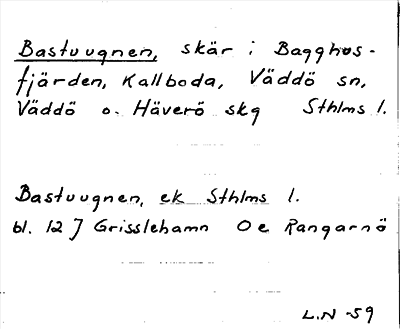 Bastuugnen, skär i Bagghus-
fjärden, Kallboda, Väddö sn,
Väddö o. Häverö skg Sthlms l.
Bastuugnen, ek Sthlms l.
bl. 12 J Grisslehamn Oe Rangarnö
L.N -59